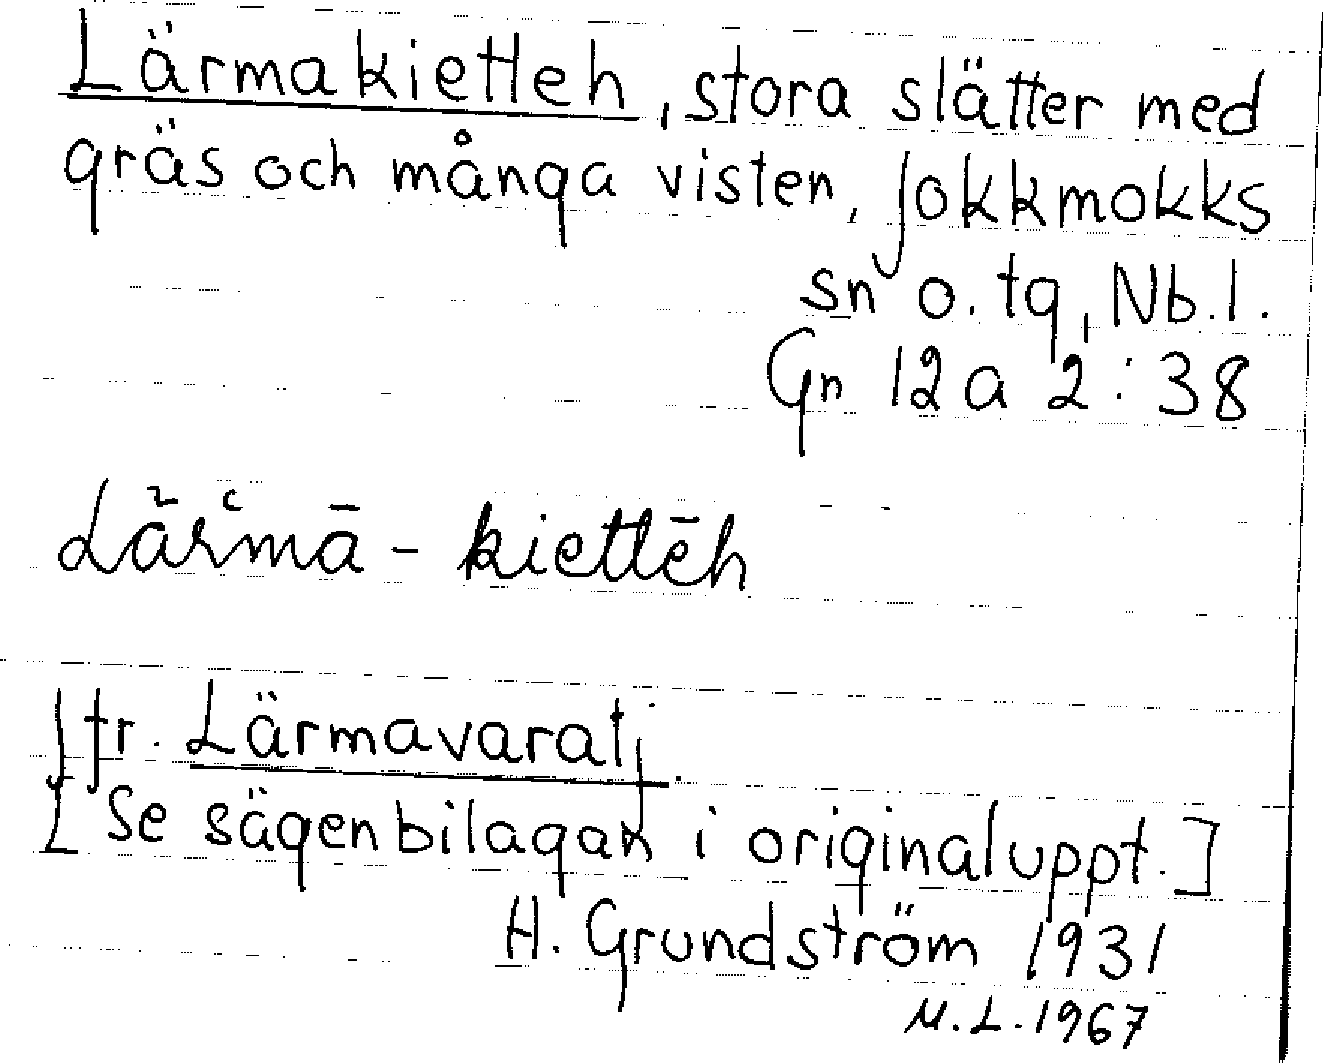 Lärmakietteh, stora slätter med
gräs och många visten, Jokkmokks
sn o. tg, Nb.l.
Gn 12a 2:38
Lärmā-kiettēh
Jfr. Lärmavaratj.
[Se sägenbilagan i originaluppt.]
H. Grundström 1931
M.L.1967